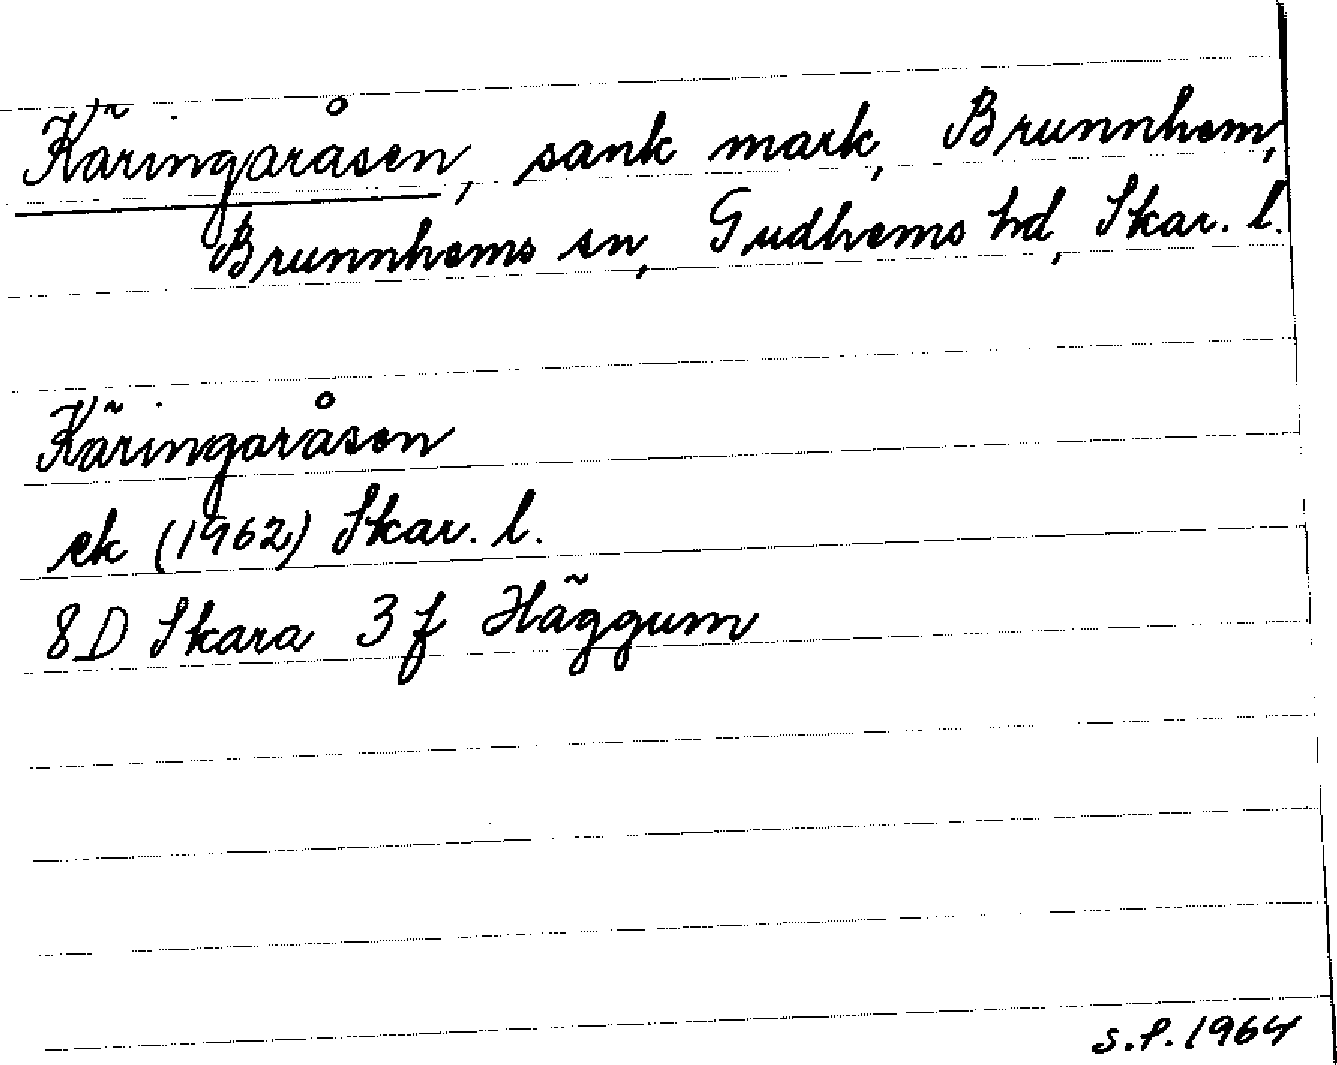 Käringaråsen, sank mark, Brunnhem,
Brunnhems sn, Gudhems hd, Skar. l.
Käringaråsen
ek (1962) Skar. l.
8D Skara 3 f Häggum
S.P. 1964